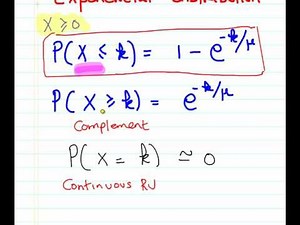 Exponential Distribution
X ≥ 0
P(X ≤ k) = 1 - e^{-k/μ}
P(X ≥ k) = e^{-k/μ}
Complement
P(X = k) ≃ 0
Continuous RV